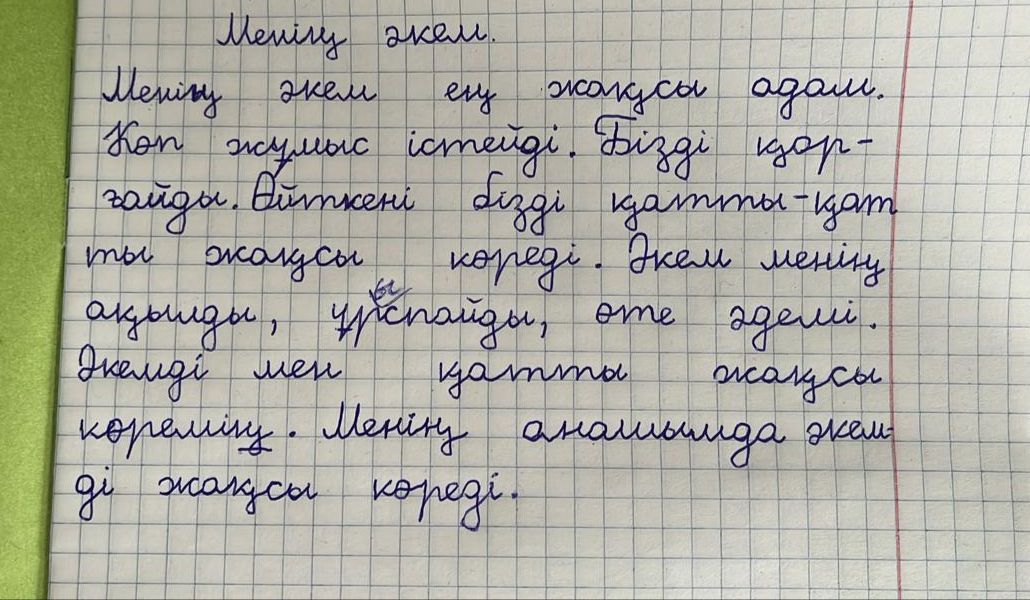 Менің әкем.
Менің әкем ең жақсы адам.
Көп жұмыс істейді. Бізді қор-
ғайды. Өйткені бізді қатты-қат
ты жақсы көреді. Әкем менің
ақылды, ұрыспайды, өте әдемі.
Әкемді мен қатты жақсы
көремің. Менің анашымда әкем-
ді жақсы көреді.